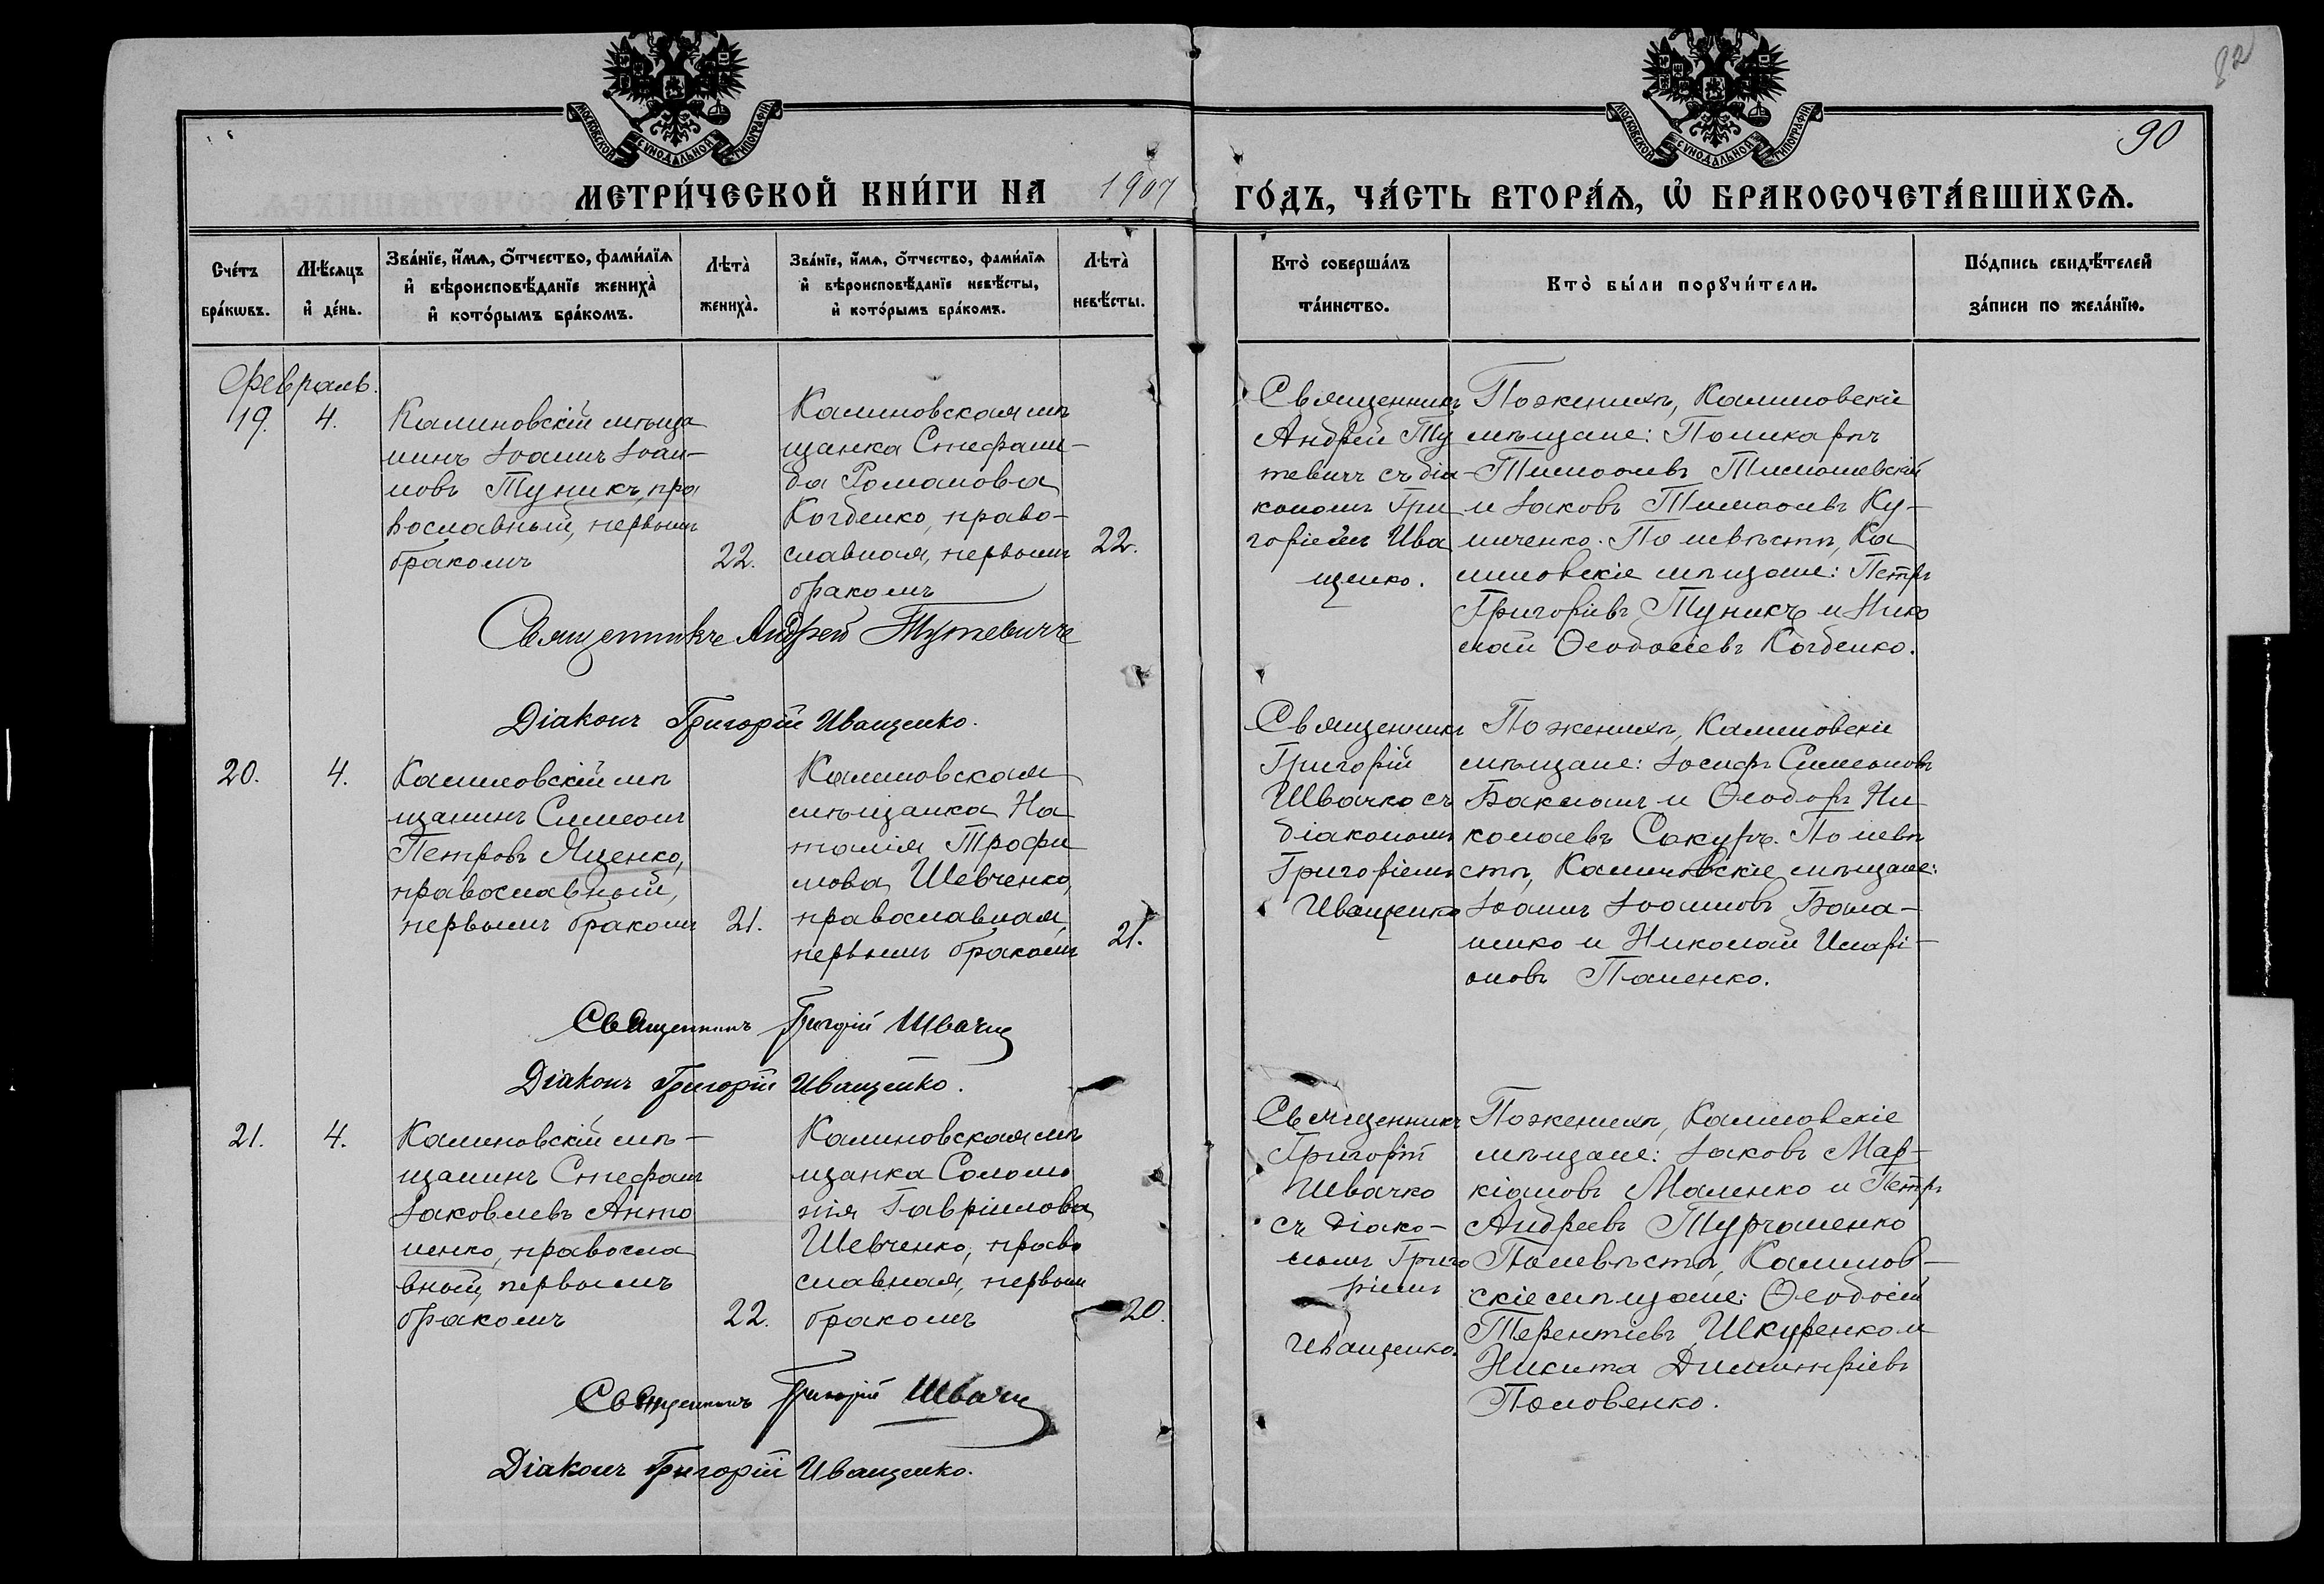 МОСКОВСКОЙ СѴНОДАЛЬНОЙ ТИПОГРАФІИ
МОСКОВСКОЙ СѴНОДАЛЬНОЙ ТИПОГРАФІИ
90
МЕТРИ́ЧЕСКОЙ КНИ́ГИ НА 1907 ГО́ДЪ, ЧА́СТЬ ВТОРА́Ѧ, Ѽ БРАКОСОЧЕТА́ВШИХСѦ.
Сче́тъ
бра́кѡвъ.
Мѣ́сѧцъ
и҆ де́нь.
Зва́нїе, и҆́мѧ, ѻ҆́тчество, фами́лїѧ
и҆ вѣроисповѣ́данїе жениха̀
и҆ кото́рымъ бра́комъ.
Лѣта̀
жениха̀.
Зва́нїе, и҆́мѧ, ѻ҆́тчество, фами́лїѧ
и҆ вѣроисповѣ́данїе невѣ́сты,
и҆ кото́рымъ бра́комъ.
Лѣта̀
невѣ́сты.
Кто̀ соверша́лъ
та́инство.
Кто̀ бы́ли порꙋчи́тели.
По́дпись свидѣ́телей
за́писи по жела́нїю.
Февраль.
19.
4.
Калиновскій мѣща
нинъ Іоаннъ Іоан-
новъ Туникъ, пра
вославный, первымъ
бракомъ
22.
Калиновская мѣ
щанка Стефани-
да Романова
Когденко, право-
славная, первымъ
бракомъ
22.
Священникъ
Андрей Ту
тевичъ съ діа-
кономъ Гри
горіемъ Ива
щенко.
По женихѣ, Калиновскіе
мѣщане: Поликарпъ
Тимоѳеевъ Тимошевскій
и Іаковъ Тимоѳеевъ Ку-
ниченко. По невѣстѣ, Ка
линовскіе мѣщане: Петръ
Григоріевъ Туникъ и Нико
лай Ѳеодосіевъ Когденко.
Священникъ Андрей Тутевичъ
Діаконъ Григорій Иващенко.
20.
4.
Калиновскій мѣ
щанинъ Симеонъ
Петровъ Яценко,
православный,
первымъ бракомъ
21.
Калиновская
мѣщанка На
талія Трофи
мова Шевченко,
православная,
первымъ бракомъ
21.
Священникъ
Григорій
Швачко съ
діакономъ
Григоріемъ
Иващенко
По женихѣ, Калиновскіе
мѣщане: Іосифъ Симеоновъ
Баклашъ и Ѳеодоръ Ни
колаевъ Сокуръ. По невѣ
стѣ, Калиновскіе мѣщане:
Іоаннъ Іоанновъ Бома-
шко и Николай Иларі-
оновъ Паненко.
Священникъ Григорій Швачко
Діаконъ Григорій Иващенко.
21.
4.
Калиновскій мѣ-
щанинъ Стефанъ
Іаковлевъ Анто
ненко, правосла
вный, первымъ
бракомъ
22.
Калиновская мѣ
щанка Соломо
нія Гавріилова
Шевченко, право
славная, первымъ
бракомъ
20.
Священникъ
Григорій
Швачко
съ діако-
номъ Григо
ріемъ
Иващенко.
По женихѣ, Калиновскіе
мѣщане: Іаковъ Мар-
кіановъ Маленко и Петръ
Андреевъ Турчаненко
По невѣстѣ, Калинов-
скіе мѣщане: Ѳеодосій
Терентіевъ Шкуренко и
Никита Димитріевъ
Половенко.
Священникъ Григорій Швачко
Діаконъ Григорій Иващенко.